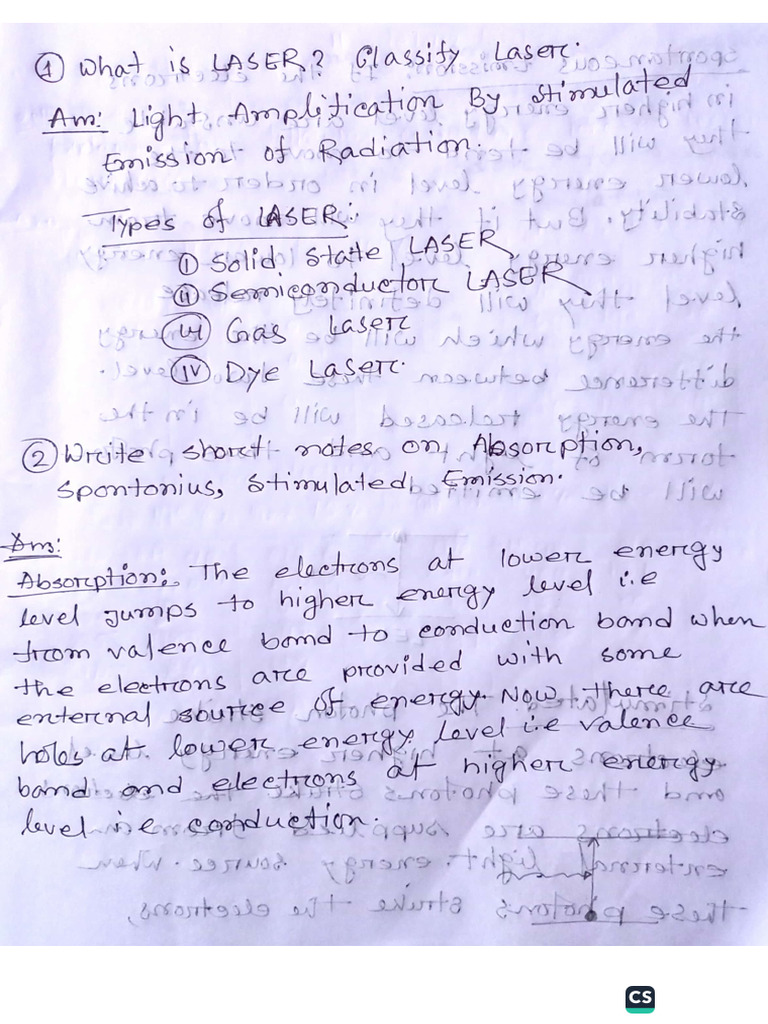 ① What is LASER? Classify Laser.
Ans: Light Amplification By Stimulated
Emission of Radiation.
Types of LASER:
① Solid State LASER
② Semiconductor LASER
③ Gas Laser
④ Dye Laser.
② Write short notes on Absorption,
Spontonius, Stimulated Emission.
Ans:
Absorption: The electrons at lower energy
level Jumps to higher energy level i.e
from valence band to conduction band when
the electrons are provided with some
enternal source of energy. Now there are
holes at lower energy level i.e valence
band and electrons at higher energy
level i.e conduction.
CS